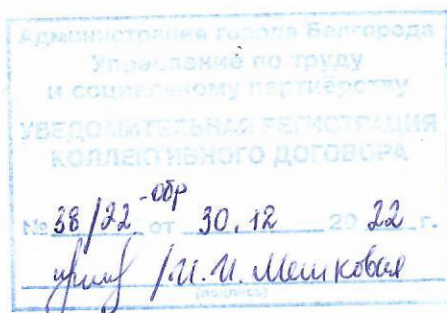 Администрация города Белгорода
Управление по труду
и социальному партнёрству
УВЕДОМИТЕЛЬНАЯ РЕГИСТРАЦИЯ
КОЛЛЕКТИВНОГО ДОГОВОРА
№ 38/22-обр от 30.12 2022 г.
/И.И. Мешковая
(подпись)